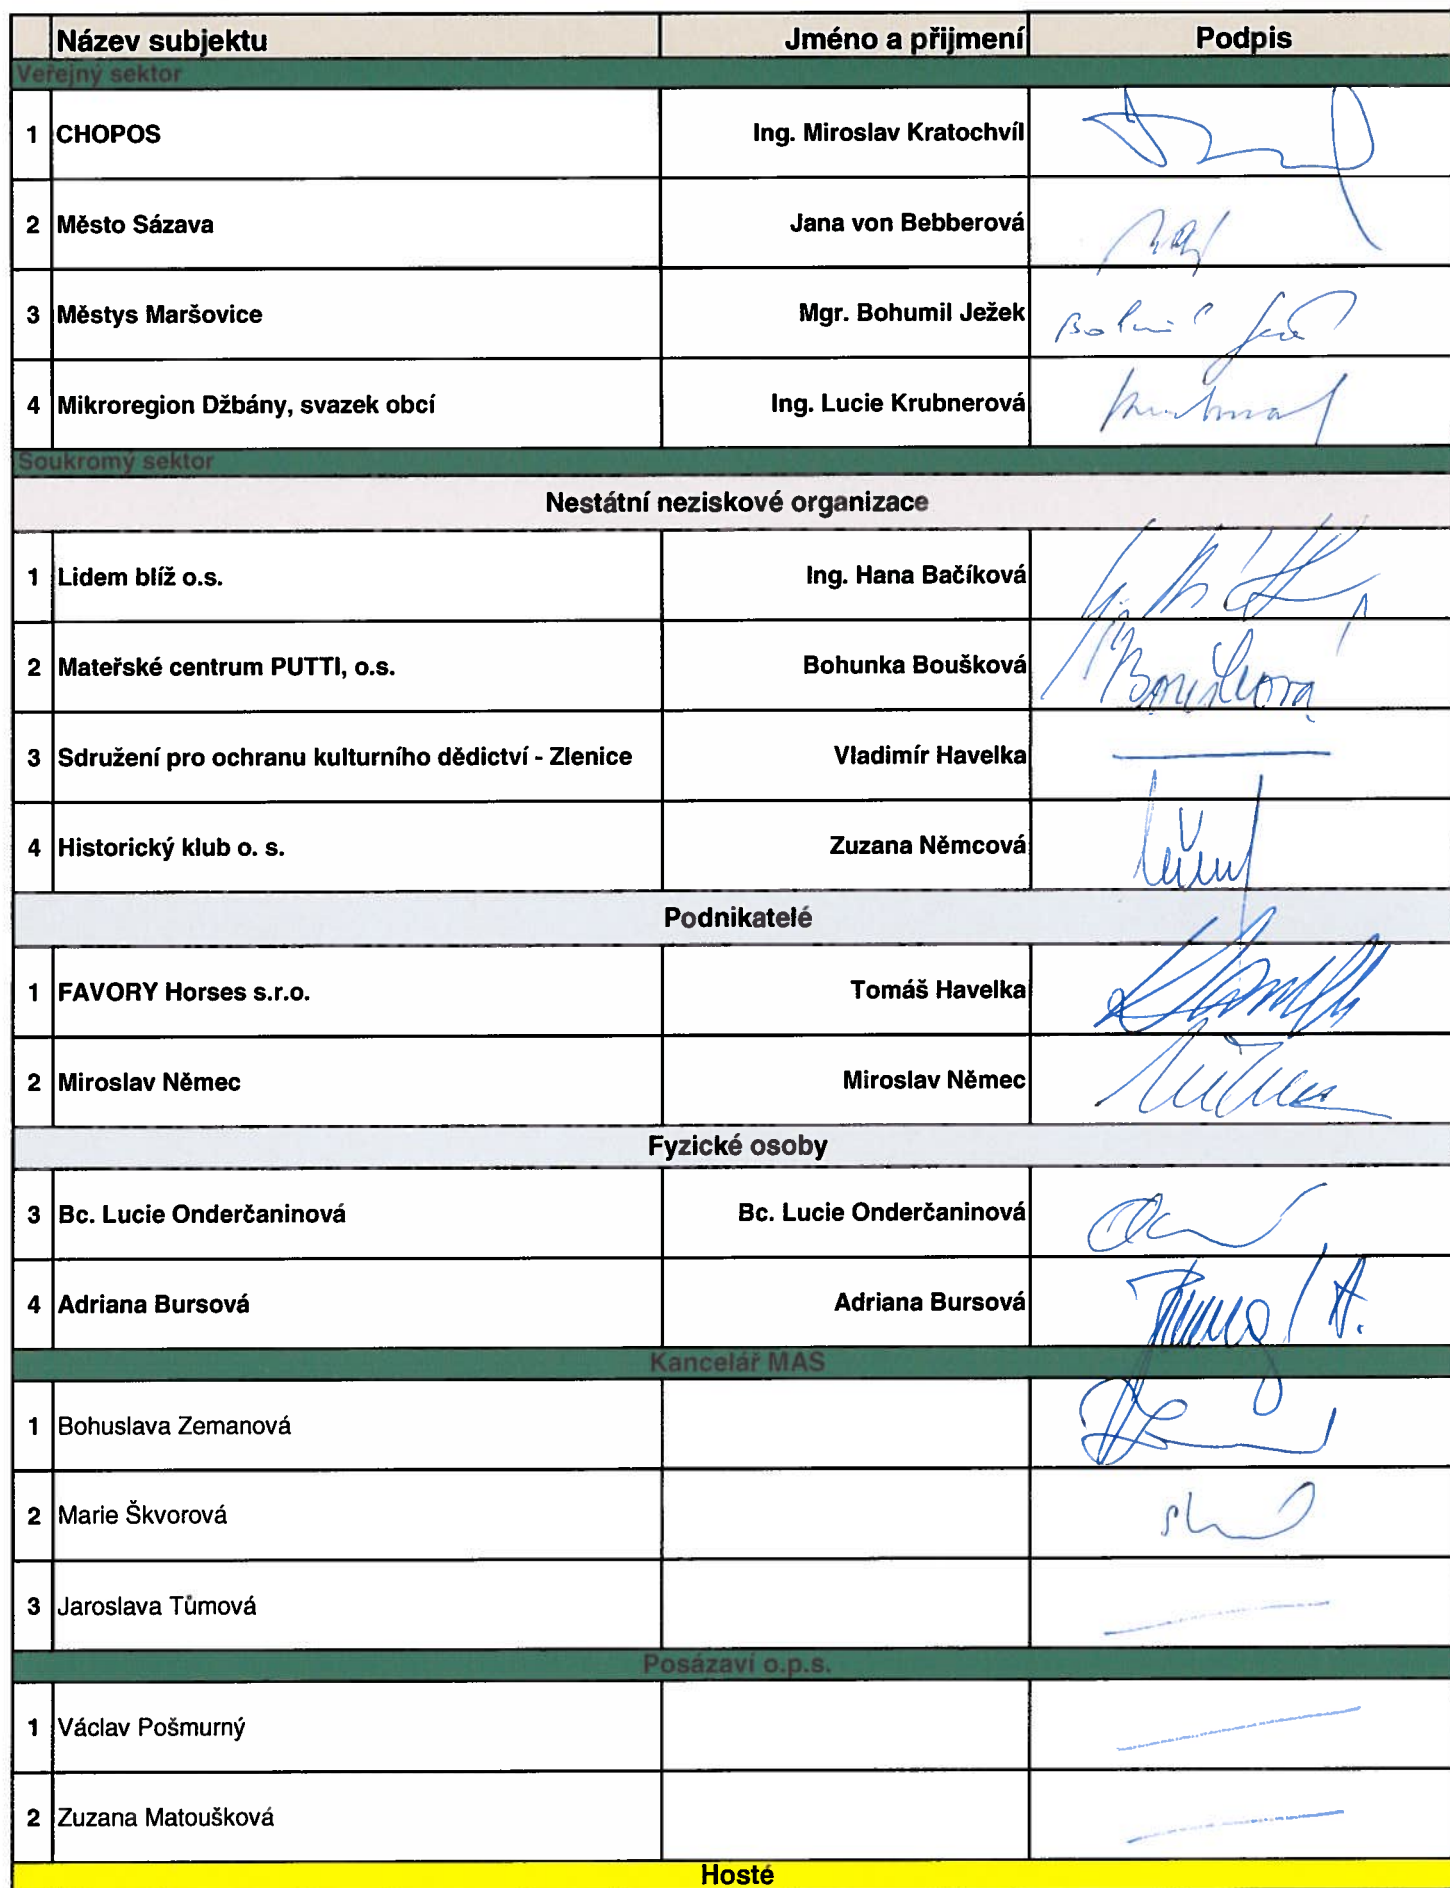 Název subjektu Jméno a přijmení Podpis
Veřejný sektor
1 CHOPOS Ing. Miroslav Kratochvíl
2 Město Sázava Jana von Bebberová
3 Městys Maršovice Mgr. Bohumil Ježek
4 Mikroregion Džbány, svazek obcí Ing. Lucie Krubnerová
Soukromý sektor
Nestátní neziskové organizace
1 Lidem blíž o.s. Ing. Hana Bačíková
2 Mateřské centrum PUTTI, o.s. Bohunka Boušková
3 Sdružení pro ochranu kulturního dědictví - Zlenice Vladimír Havelka
4 Historický klub o. s. Zuzana Němcová
Podnikatelé
1 FAVORY Horses s.r.o. Tomáš Havelka
2 Miroslav Němec Miroslav Němec
Fyzické osoby
3 Bc. Lucie Onderčaninová Bc. Lucie Onderčaninová
4 Adriana Bursová Adriana Bursová
Kancelář MAS
1 Bohuslava Zemanová
2 Marie Škvorová
3 Jaroslava Tůmová
Posázaví o.p.s.
1 Václav Pošmurný
2 Zuzana Matoušková
Hosté